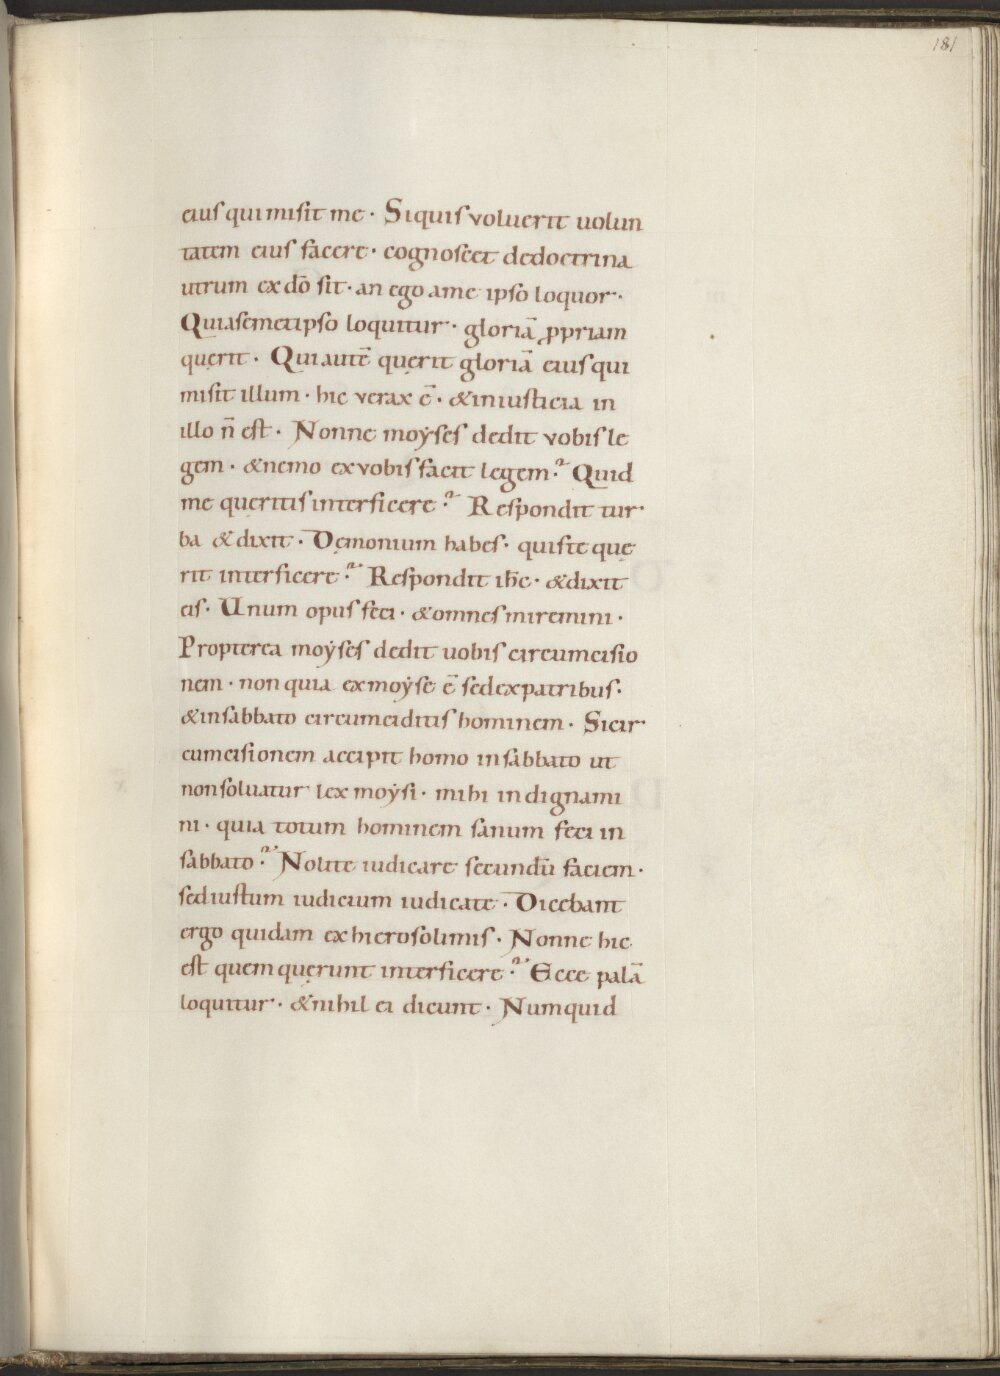 181
eius qui misit me · Siquis voluerit uolun
tatem eius facere · cognoscet dedoctrina
utrum ex dō sit · an ego ame ipso loquor ·
Quiasemetipso loquitur · gloriā ꝓpriam
quęrit · Qui autē quęrit gloriā eius qui
misit illum · hic verax ē · &iniusticia in
illo n̄ est · Nonne moẏses dedit vobis le
gem · &nemo ex vobis facit legem? Quid
me quęritis interficere? Respondit tur
ba &dixit · Dęmonium habes · quiste quę
rit interficere? Respondit ihc̄ · &dixit
eis · Unum opus feci · &omnes miremini ·
Propterea moẏses dedit uobis circumcisio
nem · non quia exmoẏse ē sedexpatribus ·
&insabbato circumciditis hominem · Sicir
cumcisionem accipit homo insabbato ut
nonsoluatur lex moẏsi · mihi indignami
ni · quia totum hominem sanum feci in
sabbato? Nolite iudicare secundū faciem ·
sediustum iudicium iudicate · Dicebant
ergo quidam exhierosolimis · Nonne hic
est quem quęrunt interficere? Ecce palā
loquitur · &nihil ei dicunt · Numquid